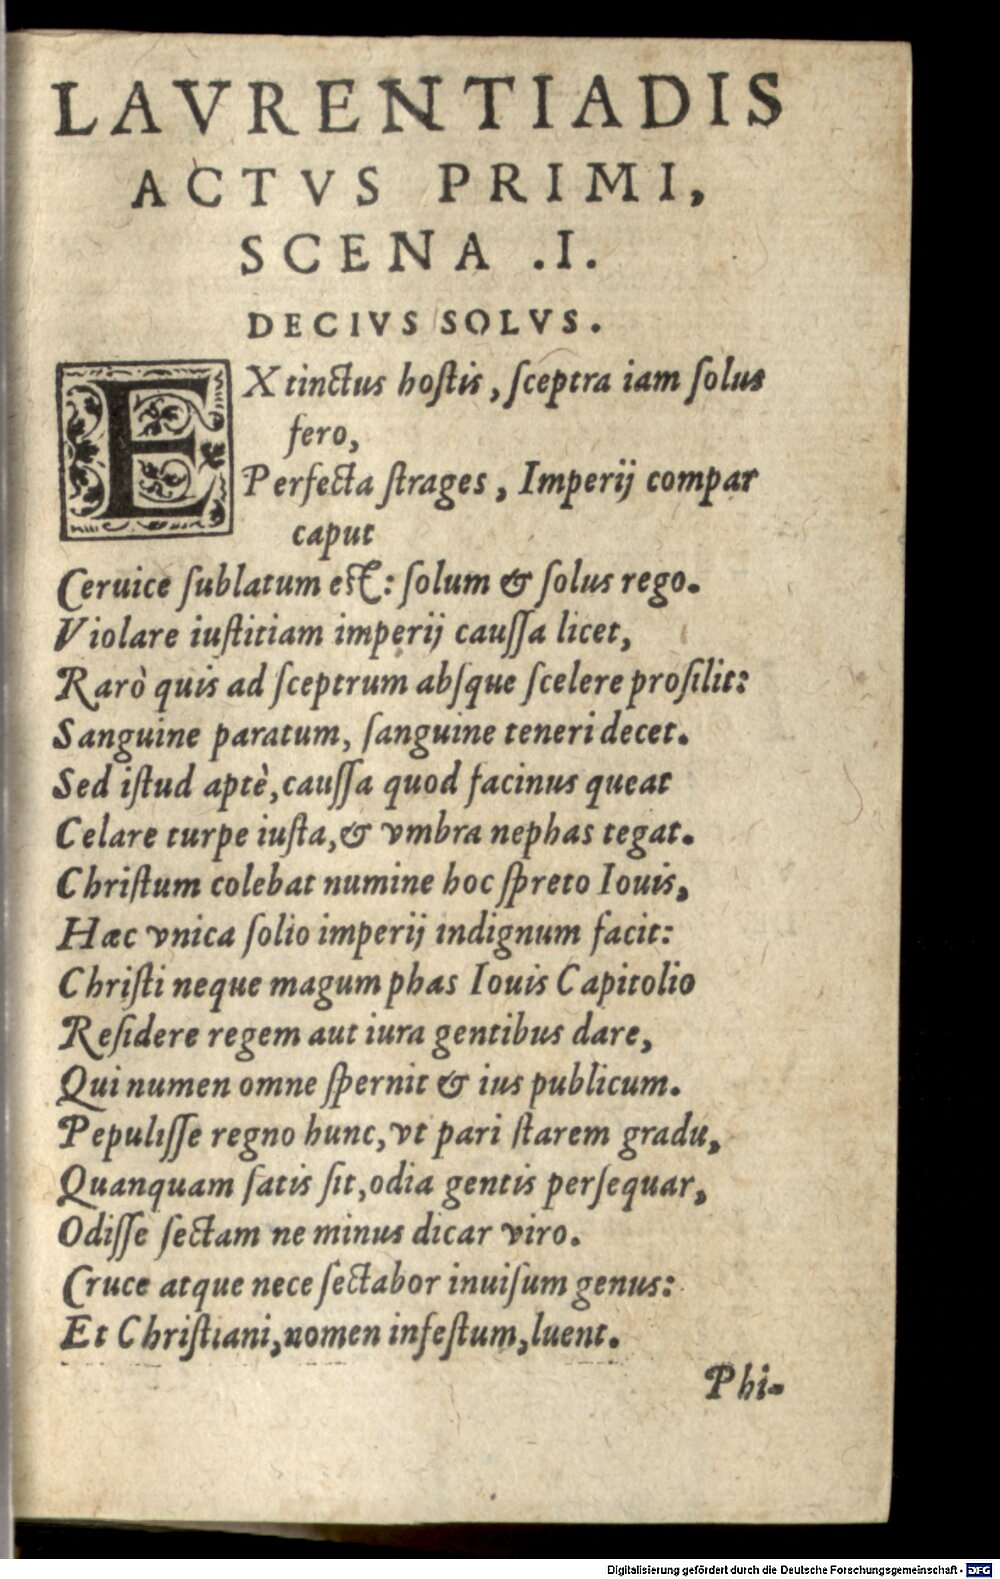 LAVRENTIADIS
ACTVS PRIMI,
SCENA .I.
DECIVS SOLVS.
EXtinctus hoſtis, ſceptra iam ſolus
fero,
Perfecta ſtrages, Imperij compar
caput
Ceruice ſublatum eſt: ſolum & ſolus rego.
Violare iuſtitiam imperij cauſſa licet,
Rarò quis ad ſceptrum abſque ſcelere proſilit:
Sanguine paratum, ſanguine teneri decet.
Sed iſtud aptè, cauſſa quod facinus queat
Celare turpe iuſta, & vmbra nephas tegat.
Chriſtum colebat numine hoc ſpreto Iouis,
Hæc vnica ſolio imperij indignum facit:
Chriſti neque magum phas Iouis Capitolio
Reſidere regem aut iura gentibus dare,
Qui numen omne ſpernit & ius publicum.
Pepuliſſe regno hunc, vt pari ſtarem gradu,
Quanquam ſatis ſit, odia gentis perſequar,
Odiſſe ſectam ne minus dicar viro.
Cruce atque nece ſectabor inuiſum genus:
Et Chriſtiani, nomen infeſtum, luent.
Phi-
Digitalisierung gefördert durch die Deutsche Forschungsgemeinschaft - DFG